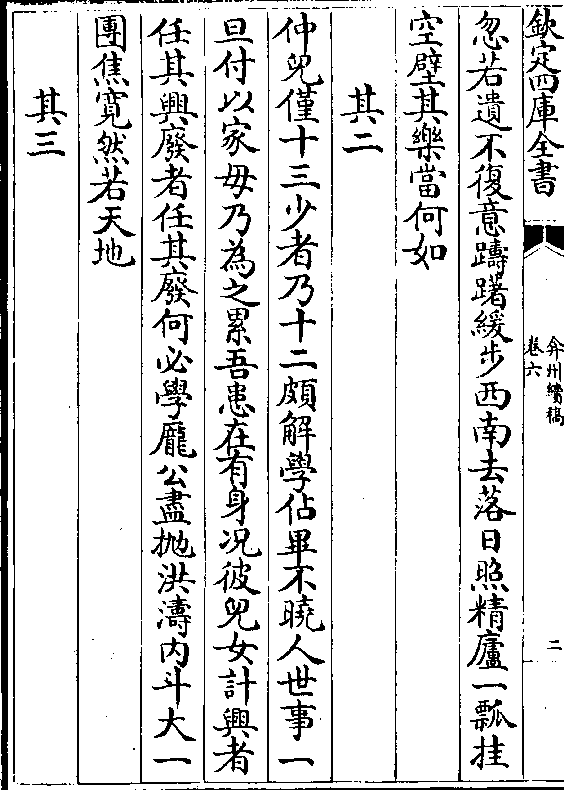 欽定四庫全書
弇州續稿
卷六
二
忽若遺不復意躊躇緩步西南去落日照精廬一瓢挂
空壁其樂當何如
其二
仲兒僅十三少者乃十二頗解學佔畢不曉人世事一
旦付以家毋乃為之累吾患在有身况彼兒女計興者
任其興廢者任其廢何必學龐公盡抛洪濤内斗大一
團焦寛然若天地
其三